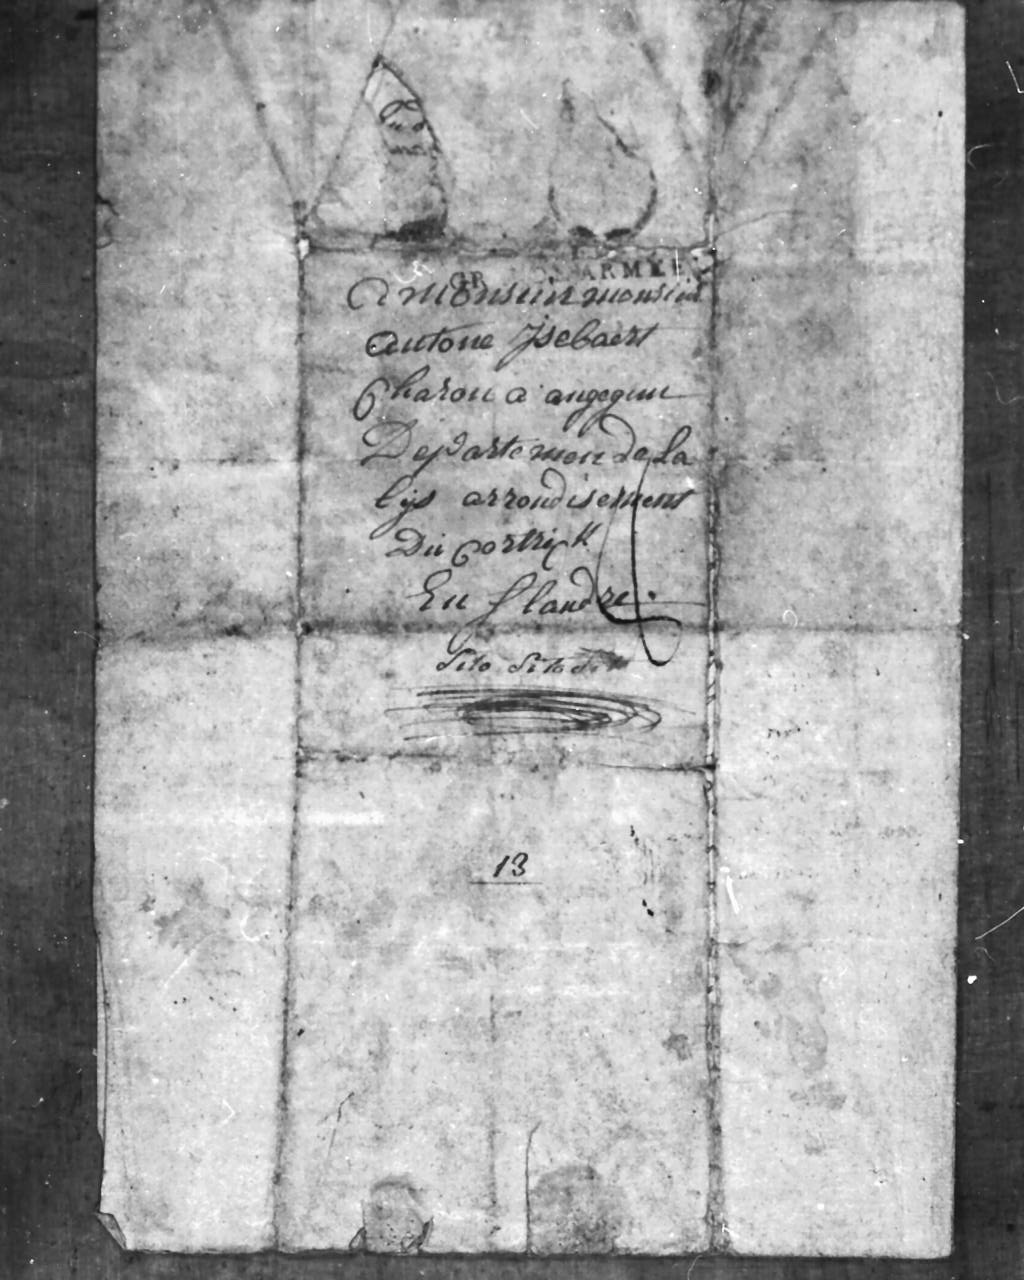 GR ARMÉE
A monsieur monsieur
antone Jsebaert
Charon a angegem
Departemen de La
lijs arrondisement
Du Cortrick
En flandre.
sito sito sito
13